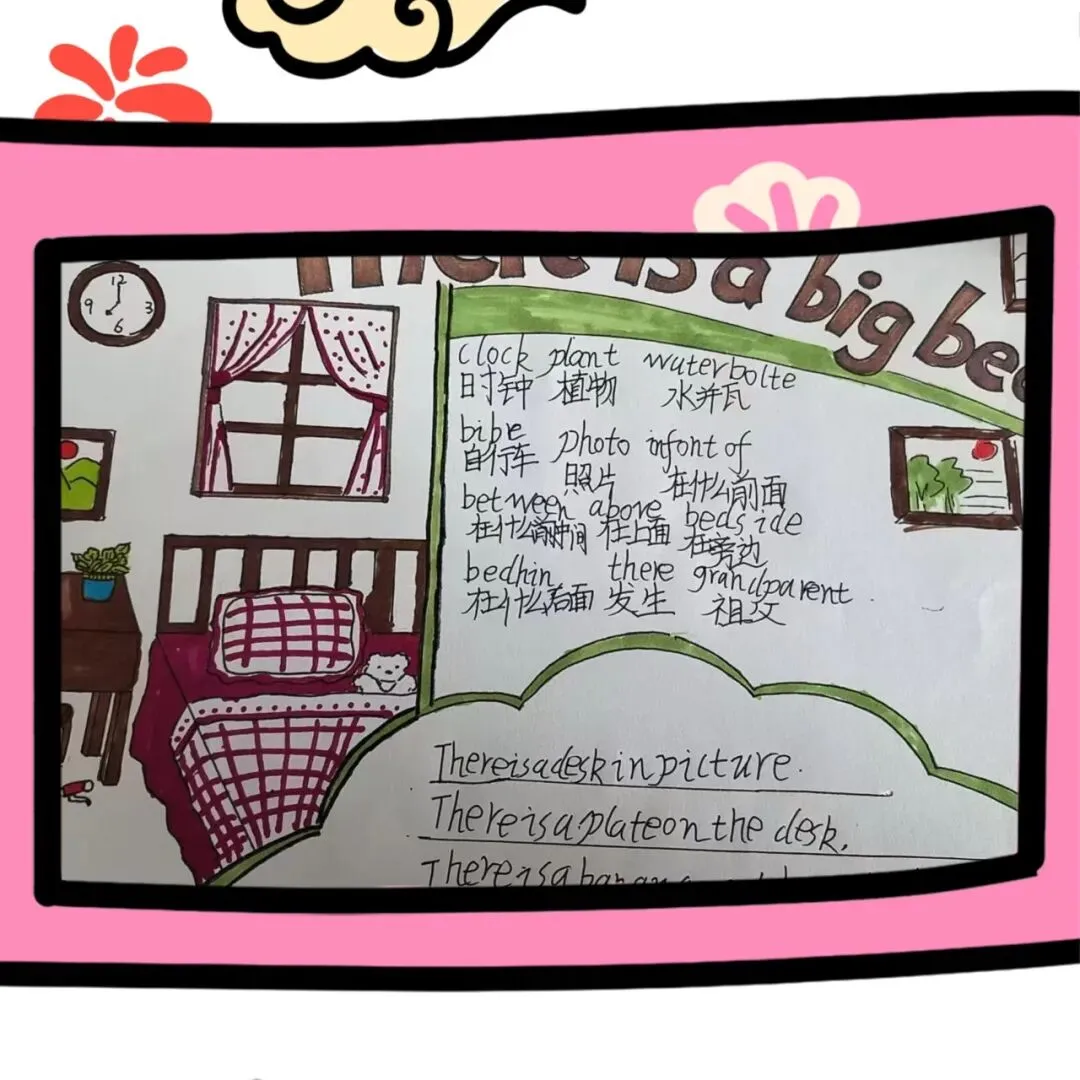 There is a big be
12
9 3
6
clock plant waterbolte
时钟 植物 水并瓦
bibe photo infont of
自行车 照片 在什么前面
between above bedside
在什么中间 在上面 在旁边
bedhin there grandparent
在什么后面 发生 祖父
There is a desk in picture.
There is a plate on the desk.
There is a banana